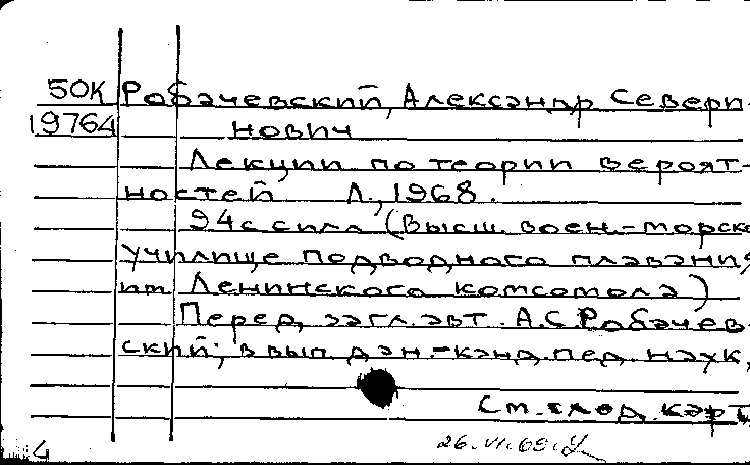 50К Рабачевский, Александр Севери-
19764 нович
Лекции по теории вероят-
ностей Л., 1968.
94 с с илл (Высш. воен.-морско
училище подводного плавания
им Ленинского комсомола)
Перед загл. авт. А.С.Рабачев-
ский; в вып. дан.-канд. пед. наук,
См. след. карт
4 26.VI.69.